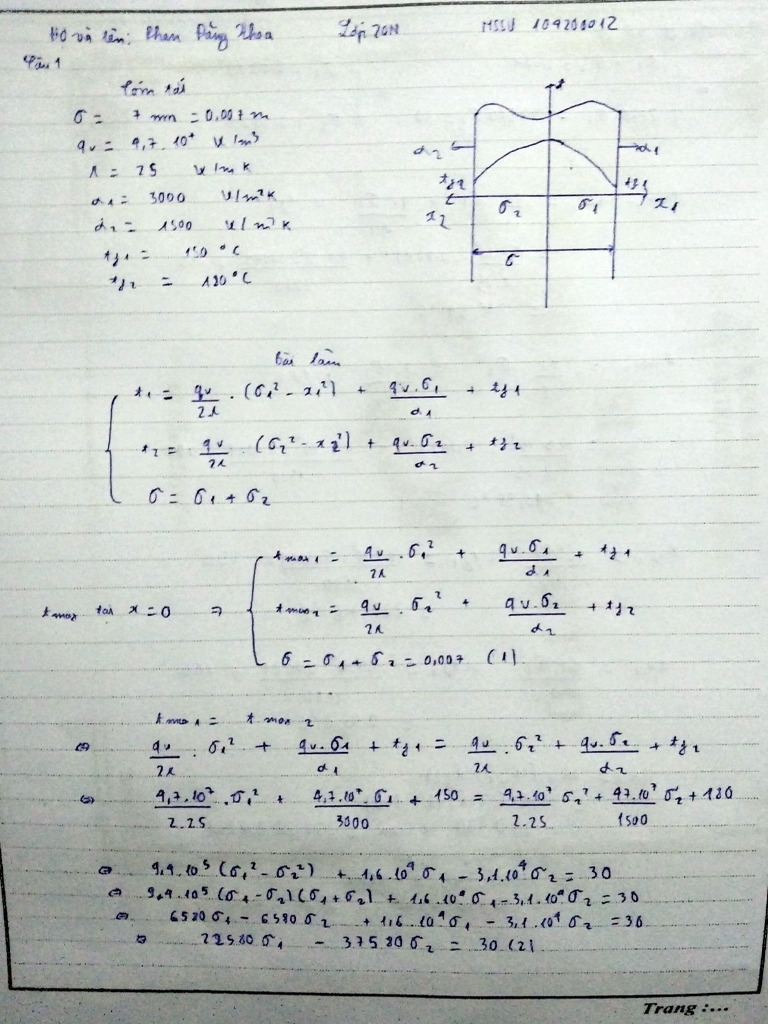 Họ và tên: Phan Đăng Khoa Lớp 20N MSSV 104200012
Câu 1
Tóm tắt
σ = 7 mm = 0,007 m
qv = 4,7.10⁷ W/m³
λ = 25 W/mK
α1 = 3000 W/m²K
α2 = 1500 W/m²K
tf1 = 150 °C
tf2 = 180 °C
t
α2 α1
tf2 tf1
x2 σ2 σ1 x1
σ
Bài làm
t1 = qv/2λ . (σ1² - x1²) + qv.σ1/α1 + tf1
t2 = qv/2λ . (σ2² - x2²) + qv.σ2/α2 + tf2
σ = σ1 + σ2
tmax1 = qv/2λ . σ1² + qv.σ1/α1 + tf1
tmax tại x = 0 ⇒ tmax2 = qv/2λ . σ2² + qv.σ2/α2 + tf2
σ = σ1 + σ2 = 0,007 (1)
tmax1 = tmax2
⇔ qv/2λ . σ1² + qv.σ1/α1 + tf1 = qv/2λ . σ2² + qv.σ2/α2 + tf2
⇔ 4,7.10⁷/2.25 . σ1² + 4,7.10⁷.σ1/3000 + 150 = 4,7.10⁷/2.25 σ2² + 47.10⁷/1500 σ2 + 180
⇔ 9,4.10⁵ (σ1² - σ2²) + 1,6.10⁴ σ1 - 3,1.10⁴ σ2 = 30
⇔ 9,4.10⁵ (σ1 - σ2)(σ1 + σ2) + 1,6.10⁴ σ1 - 3,1.10⁴ σ2 = 30
⇔ 6580 σ1 - 6580 σ2 + 1,6.10⁴ σ1 - 3,1.10⁴ σ2 = 30
⇔ 22580 σ1 - 37580 σ2 = 30 (2)
Trang :...